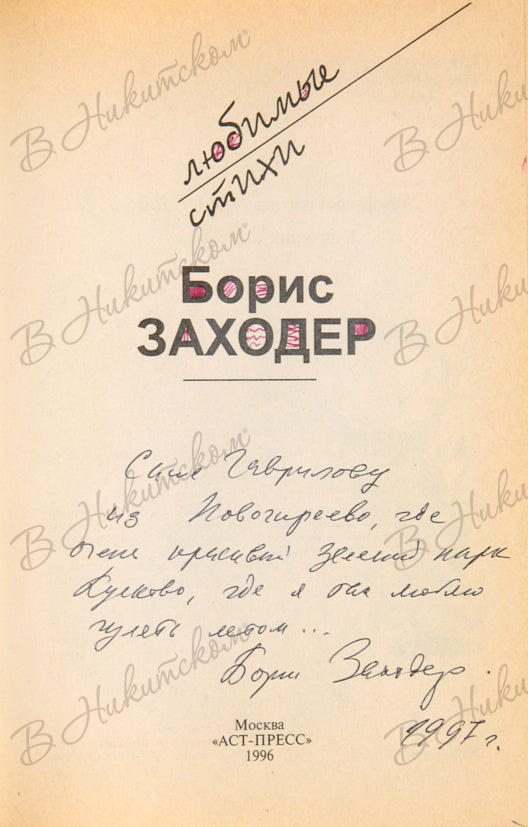 любимые
стихи
Борис
ЗАХОДЕР
Саше Гаврилову
из Новогиреево, где
очень красивый зеленый парк
Кусково, где я так люблю
гулять летом...
Борис Заходер.
1997 г.
Москва
«АСТ-ПРЕСС»
1996
В Никитском
В Никитском
В Никитском
В Никитском
В Никитском
В Никитском
В Никитском
В Никитском